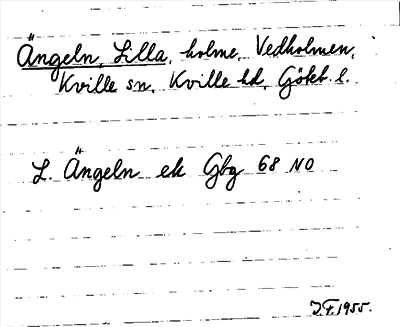 Ängeln, Lilla, holme, Vedholmen,
Kville sn, Kville hd, Götb. l.
L. Ängeln ek Gbg 68 NO
J.F. 1955.